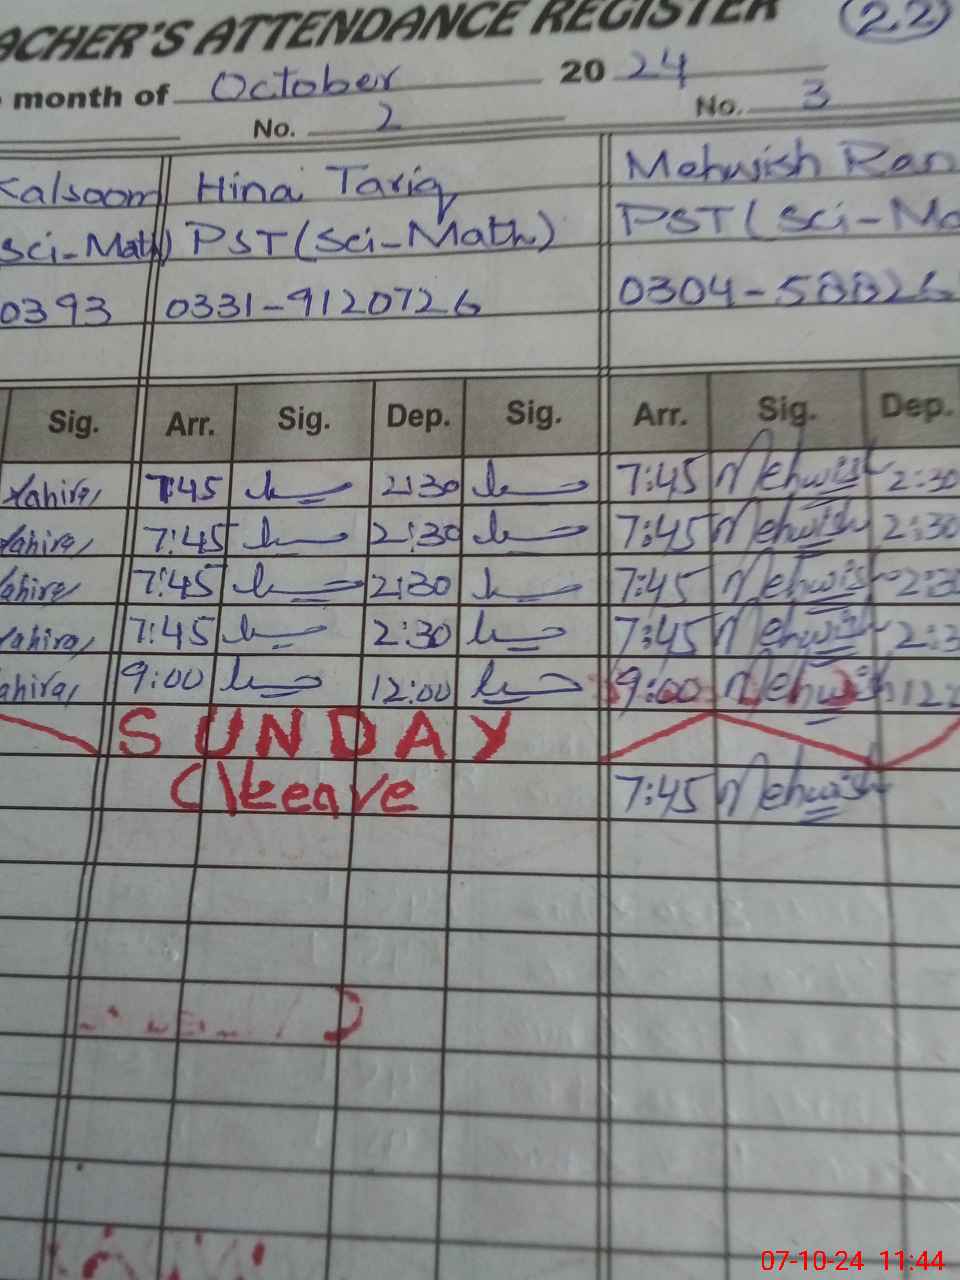 ACHER'S ATTENDANCE REGISTER (22)
month of October 20 24
No. 2 No. 3
Kalsoom Hina Tariq Mehwish Ran
Sci-Math) PST (Sci-Math) PST (Sci-Ma
0393 0331-9120726 0304-58826
Sig. Arr. Sig. Dep. Sig. Arr. Sig. Dep.
Tahira 7:45 2:30 7:45 Mehwish 2:30
Tahira 7:45 2:30 7:45 Mehwish 2:30
Tahira 7:45 2:30 7:45 Mehwish 2:3
Tahira 7:45 2:30 7:45 Mehwish 2:3
ahira 9:00 12:00 9:00 Mehwish 12
SUNDAY
C/Leave 7:45 Mehwish
07-10-24 11:44